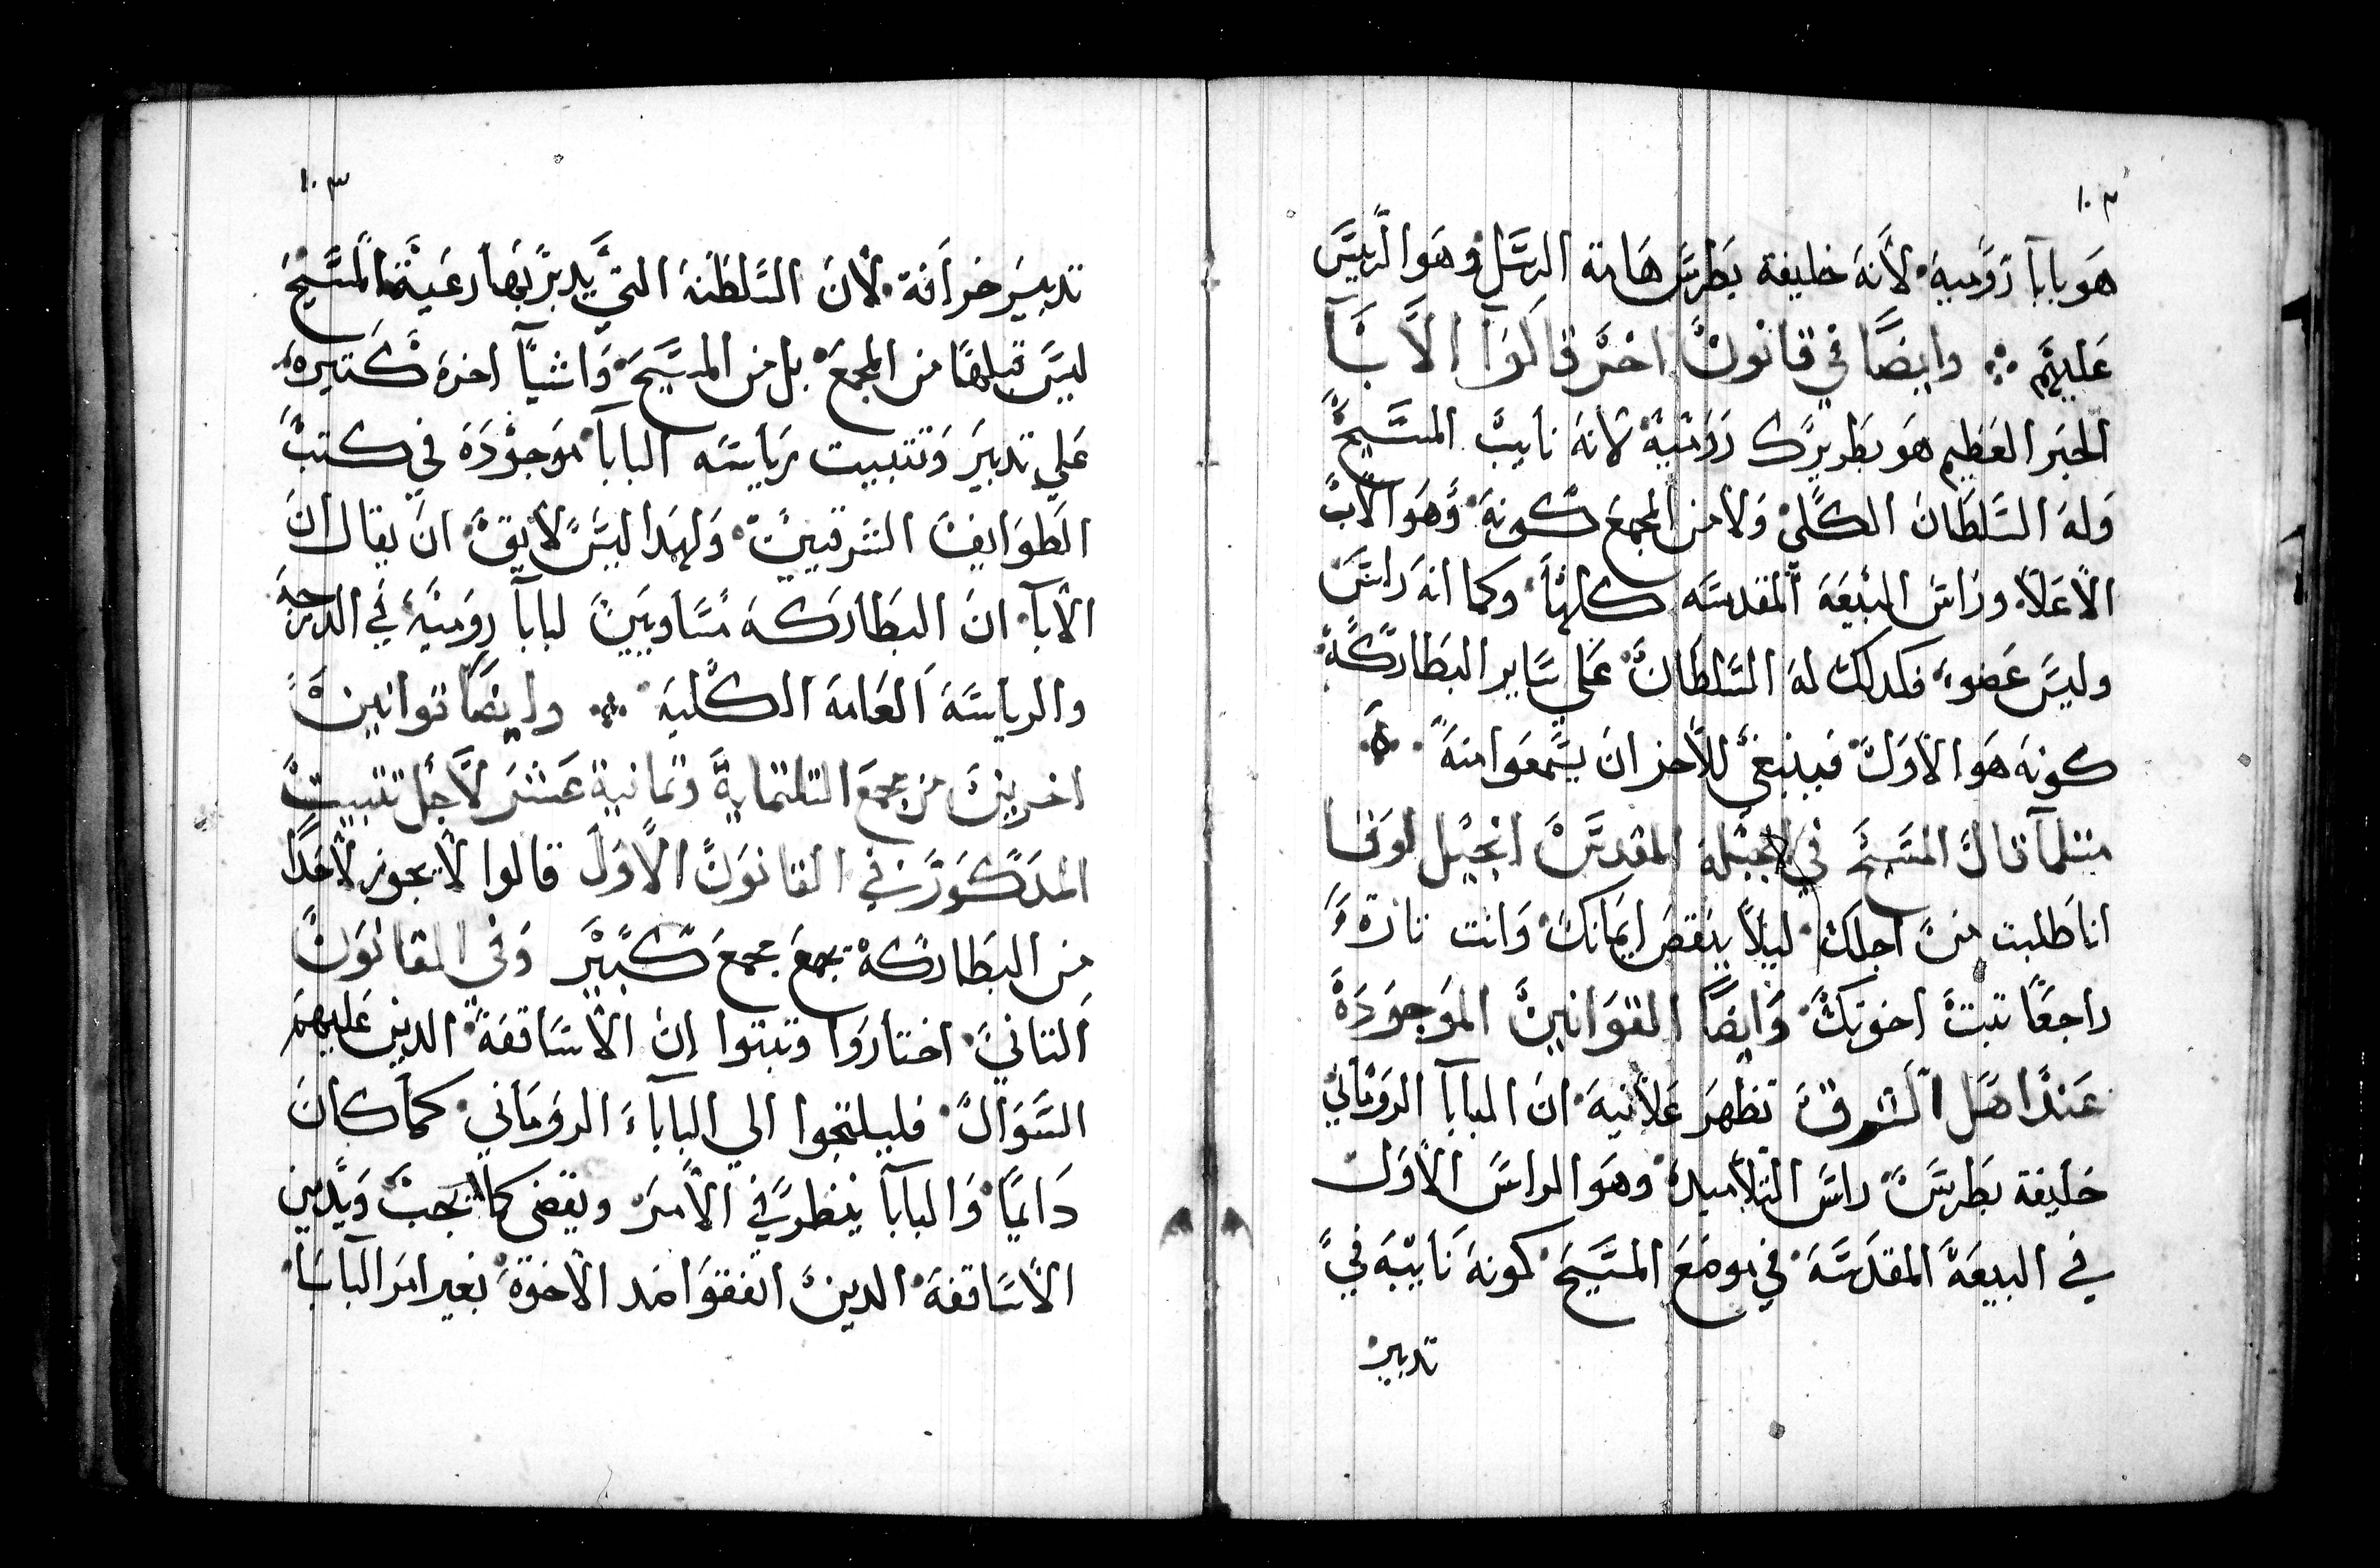 ١٠٢
هو بابا رومية لانه خليفة بطرس هامة الرسل وهو الرييس
عليهم ⁘ وايضًا في قانون اخر قالوا الابآ
الحبر العظيم هو بطريرك رومية لانه نايب المسيح
وله السلطان الكلي ولا من المجمع كونه وهو الاب
الاعلا وراس البيعه المقدسه كلها وكما انه راس
وليس عضو فكدلك له السلطان علي ساير البطاركة
كونه هو الاول فينبغي للاخر ان يسمعوا منه
متلما قال المسيح في الانجيله المقدس انجيل لوقا
انا طلبت من اجلك ليلا ينقص ايمانك وانت تارة
راجعًا تبت اخوتك وايضًا القوانين الموجودة
عند اهل الشرق تظهر علانية ان البابا الروماني
خليفة بطرس راس التلاميد وهو الراس الاول
في البيعة المقدسة في موضع المسيح كونه نايبه في
تدبير
١٠٣
تدبير خرافه لان السلطنه التي يدبر بها رعية المسيح
ليس قبلها من المجمع بل من المسيح واشيآ اخره كتيره
علي تدبير وتتبيت رياسه البابا موجودة في كتب
الطوايف الشرقيين ولهدا ليس لايق ان يقال ان
الابآ ان البطاركة متساويين لبابا رومية في الدرجه
والرياسة العامة الكلية ⁘ وايضًا قوانين
اخرين من مجمع التلتماية وتمانية عشر لاجل تتبيت
المدكور في القانون الاول قالوا لا يجوز لاحد
من البطاركة تجمع مجمع كبير وفي القانون
التاني اختاروا وتبتوا ان الاساقفة الدين عليهم
السوال فليلتجوا الي البابا الروماني كما كان
دايمًا والبابا ينظر في الامر ويقضي كما يجب ويدين
الاساقفة الدين اتفقوا ضد الاخوة بغير امر البابا